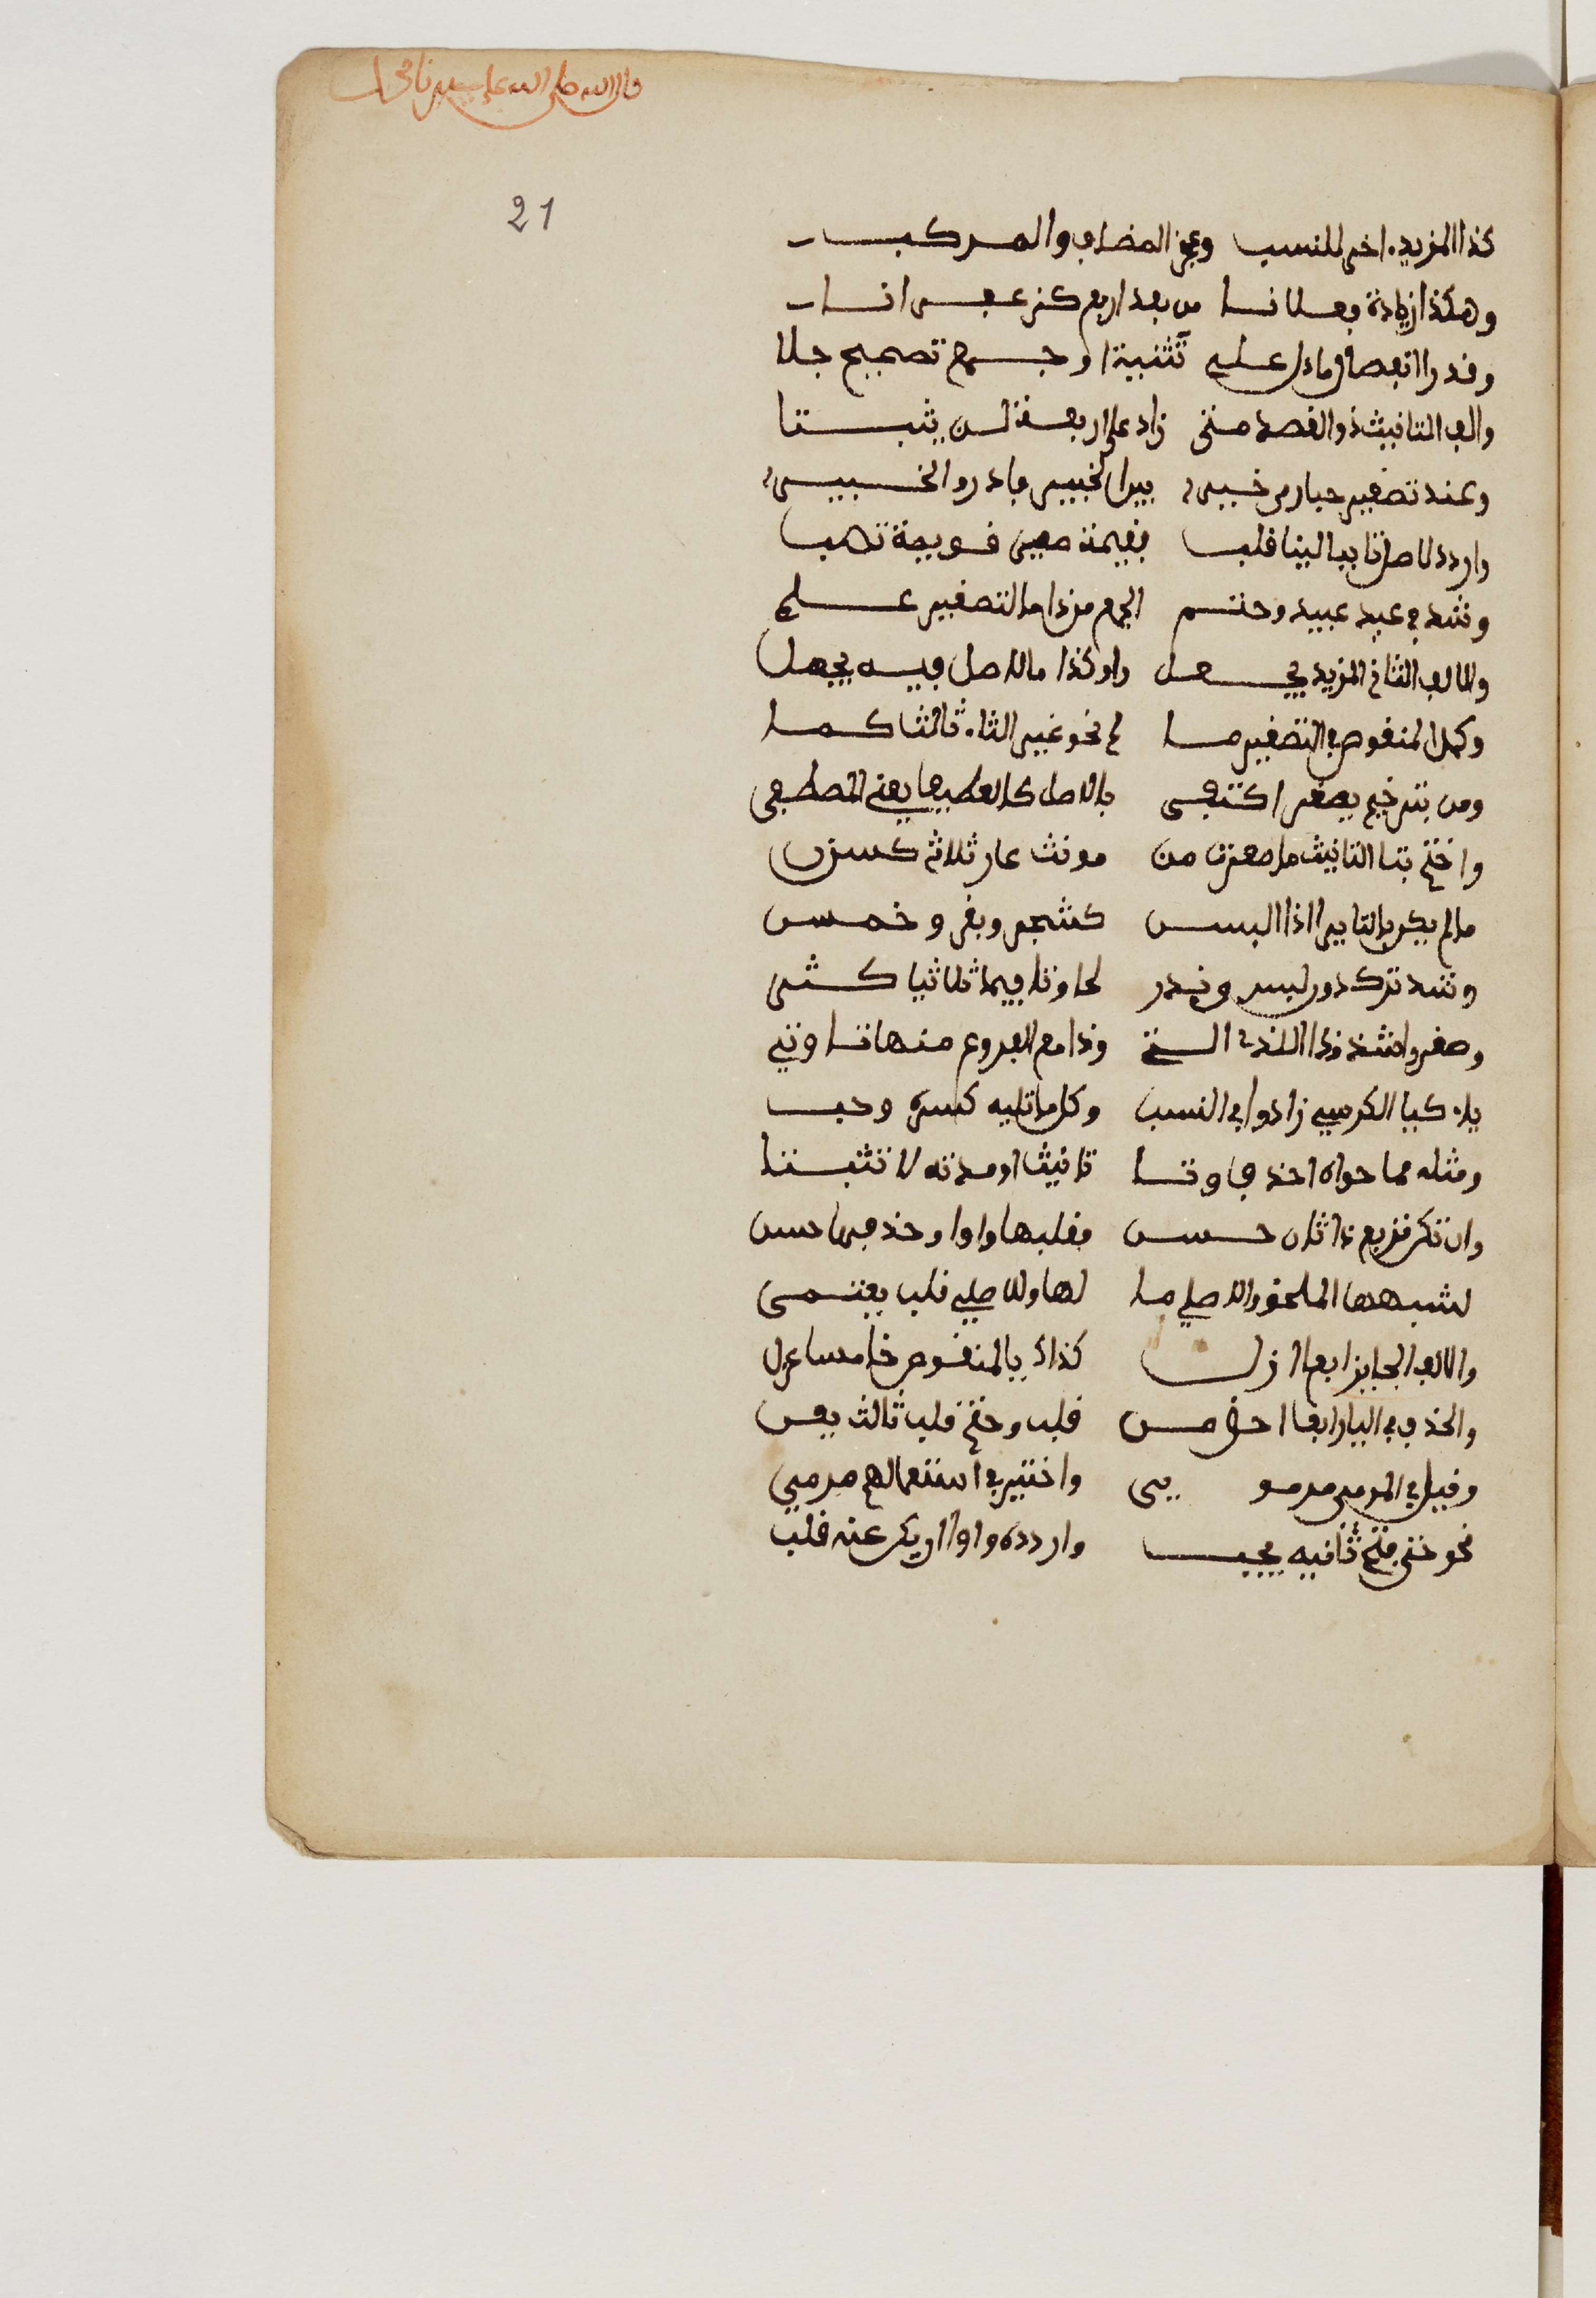 قال الله صلى الله على سيدنا محمد
21
كذا المزيد ءاخرا للنسب وعجز المضاف والمركب
وهكذا زيادة فعلانا من بعد اربع كزعفرانا
وقدر انفصال ما دل على تثنية او جمع تصحيح جلا
والف التانيث ذو القصر متى زاد على اربعة لن يثبتا
وعند تصغير حبارى خير بين الحبيرى فادر والحبير
واردد لاصل ثانيا لينا قلب فقيمة صير قويمة تصب
وشذ في عيد عييد وحتم للجمع من ذا ما لتصغير علم
والالف الثاني المزيد يجعل واوا كذا ما الاصل فيه يجهل
وكمل المنقوص في التصغير ما لم يحو غير التاء ثالثا كما
ومن بترخيم يصغر اكتفى بالاصل كالعطيف يعني المعطفى
واختم بتا التانيث ما صغرت من مونث عار ثلاثي كسن
ما لم يكن بالتا يرى ذا لبس كشجر وبقر وخمس
وشذ ترك دون لبس وندر لحاق تا فيما ثلاثيا كثر
وصغروا شذوذا الذي التي وذا مع الفروع منها تا وتي
ياء كيا الكرسي زادوا في النسب وكل ما تليه كسره وجب
ومثله مما حواه احذف وتا تانيث او مدته لا تثبتا
وان تكن تربع ذا ثان سكن فقلبها واوا وحذفها حسن
لشبهها الملحق والاصلي ما لها وللاصلي قلب يعتمى
والالف الجايز اربعا ازل كذاك يا المنقوص خامسا عزل
والحذف في اليا رابعا احق من قلب وحتم قلب ثالث يعن
وقيل في المرمى مرموي واختير في استعمالهم مرمي
نحو حي فتح ثانيه يجب واردده واوا ان يكن عنه قلب